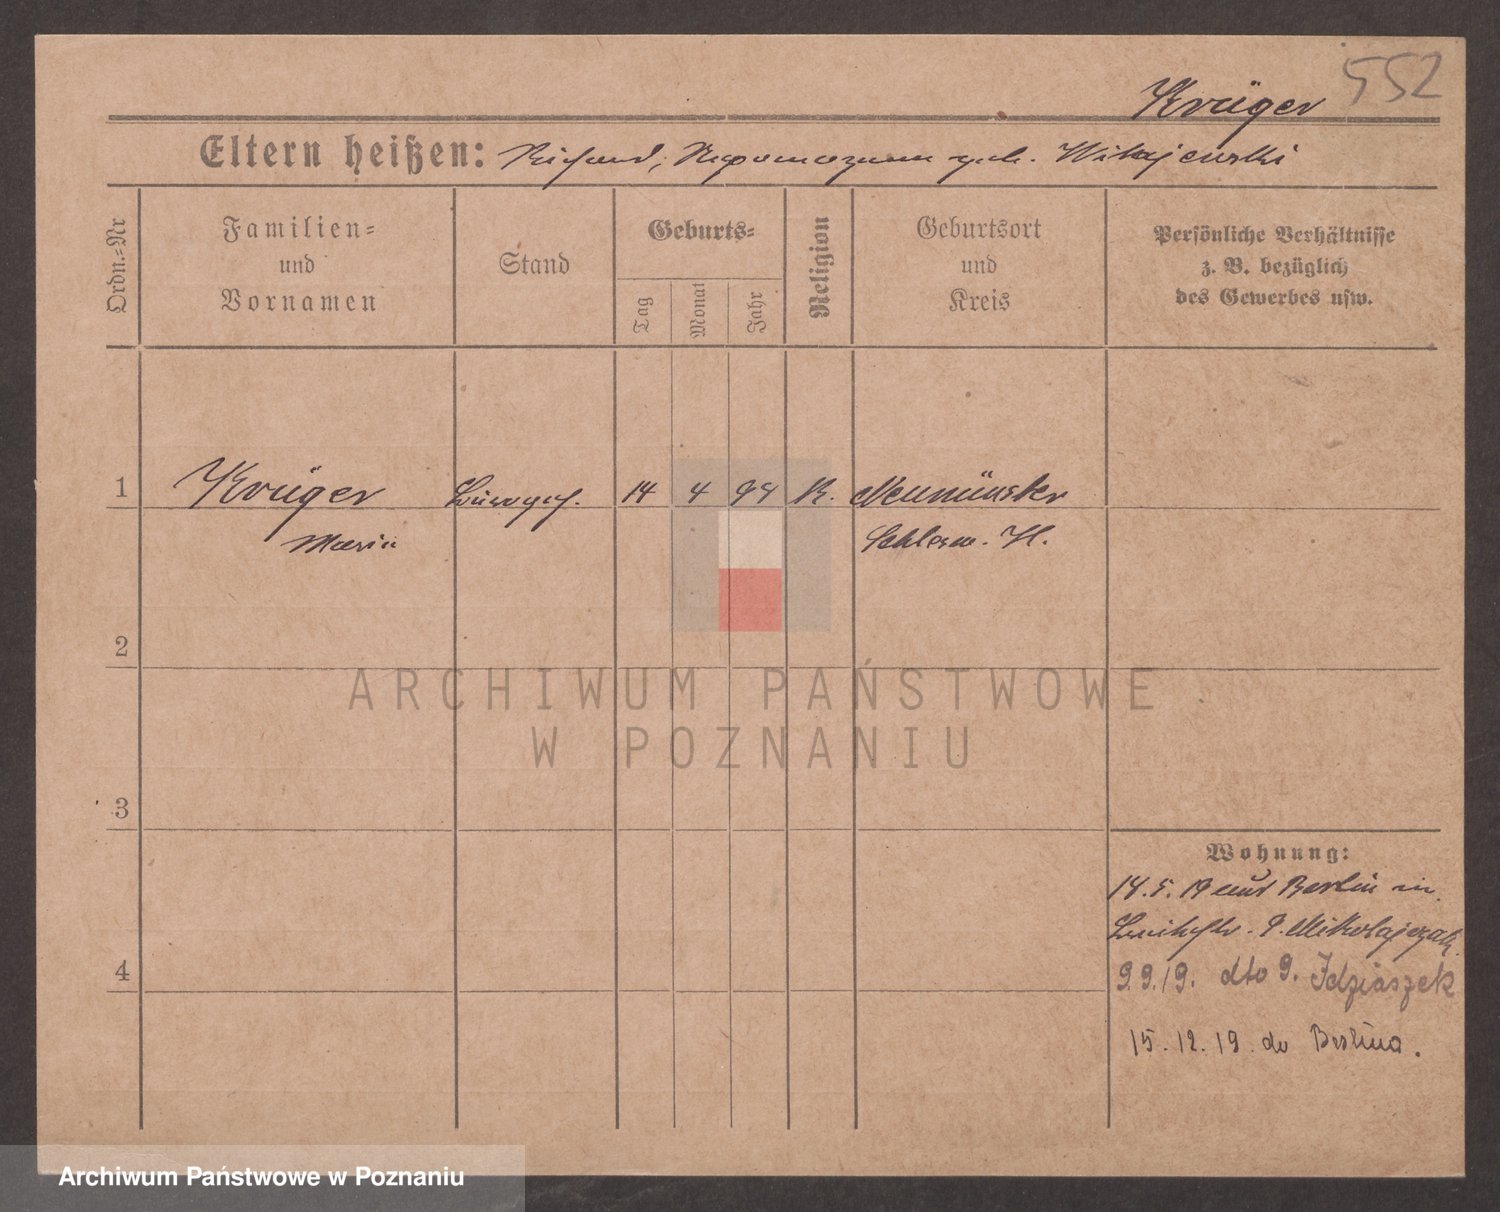 552
Krüger
Eltern heißen: Richard, Nepomozena geb. Witajewski
Ordn.=Nr
Familien=
und
Vornamen
Stand
Geburts=
Tag
Monat
Jahr
Religion
Geburtsort
und
Kreis
Persönliche Verhältnisse
z. B. bezüglich
des Gewerbes usw.
1 Krüger 14 4 99 K. Neumünster
Maria Schlesw. H.
2
ARCHIWUM PAŃSTWOWE
W POZNANIU
3
Wohnung:
14.5.19 aus Berlin in
Mikolajczak
4
9.9.19. dto 9. Idziaszek
15.12.19. do Berlina.
Archiwum Państwowe w Poznaniu